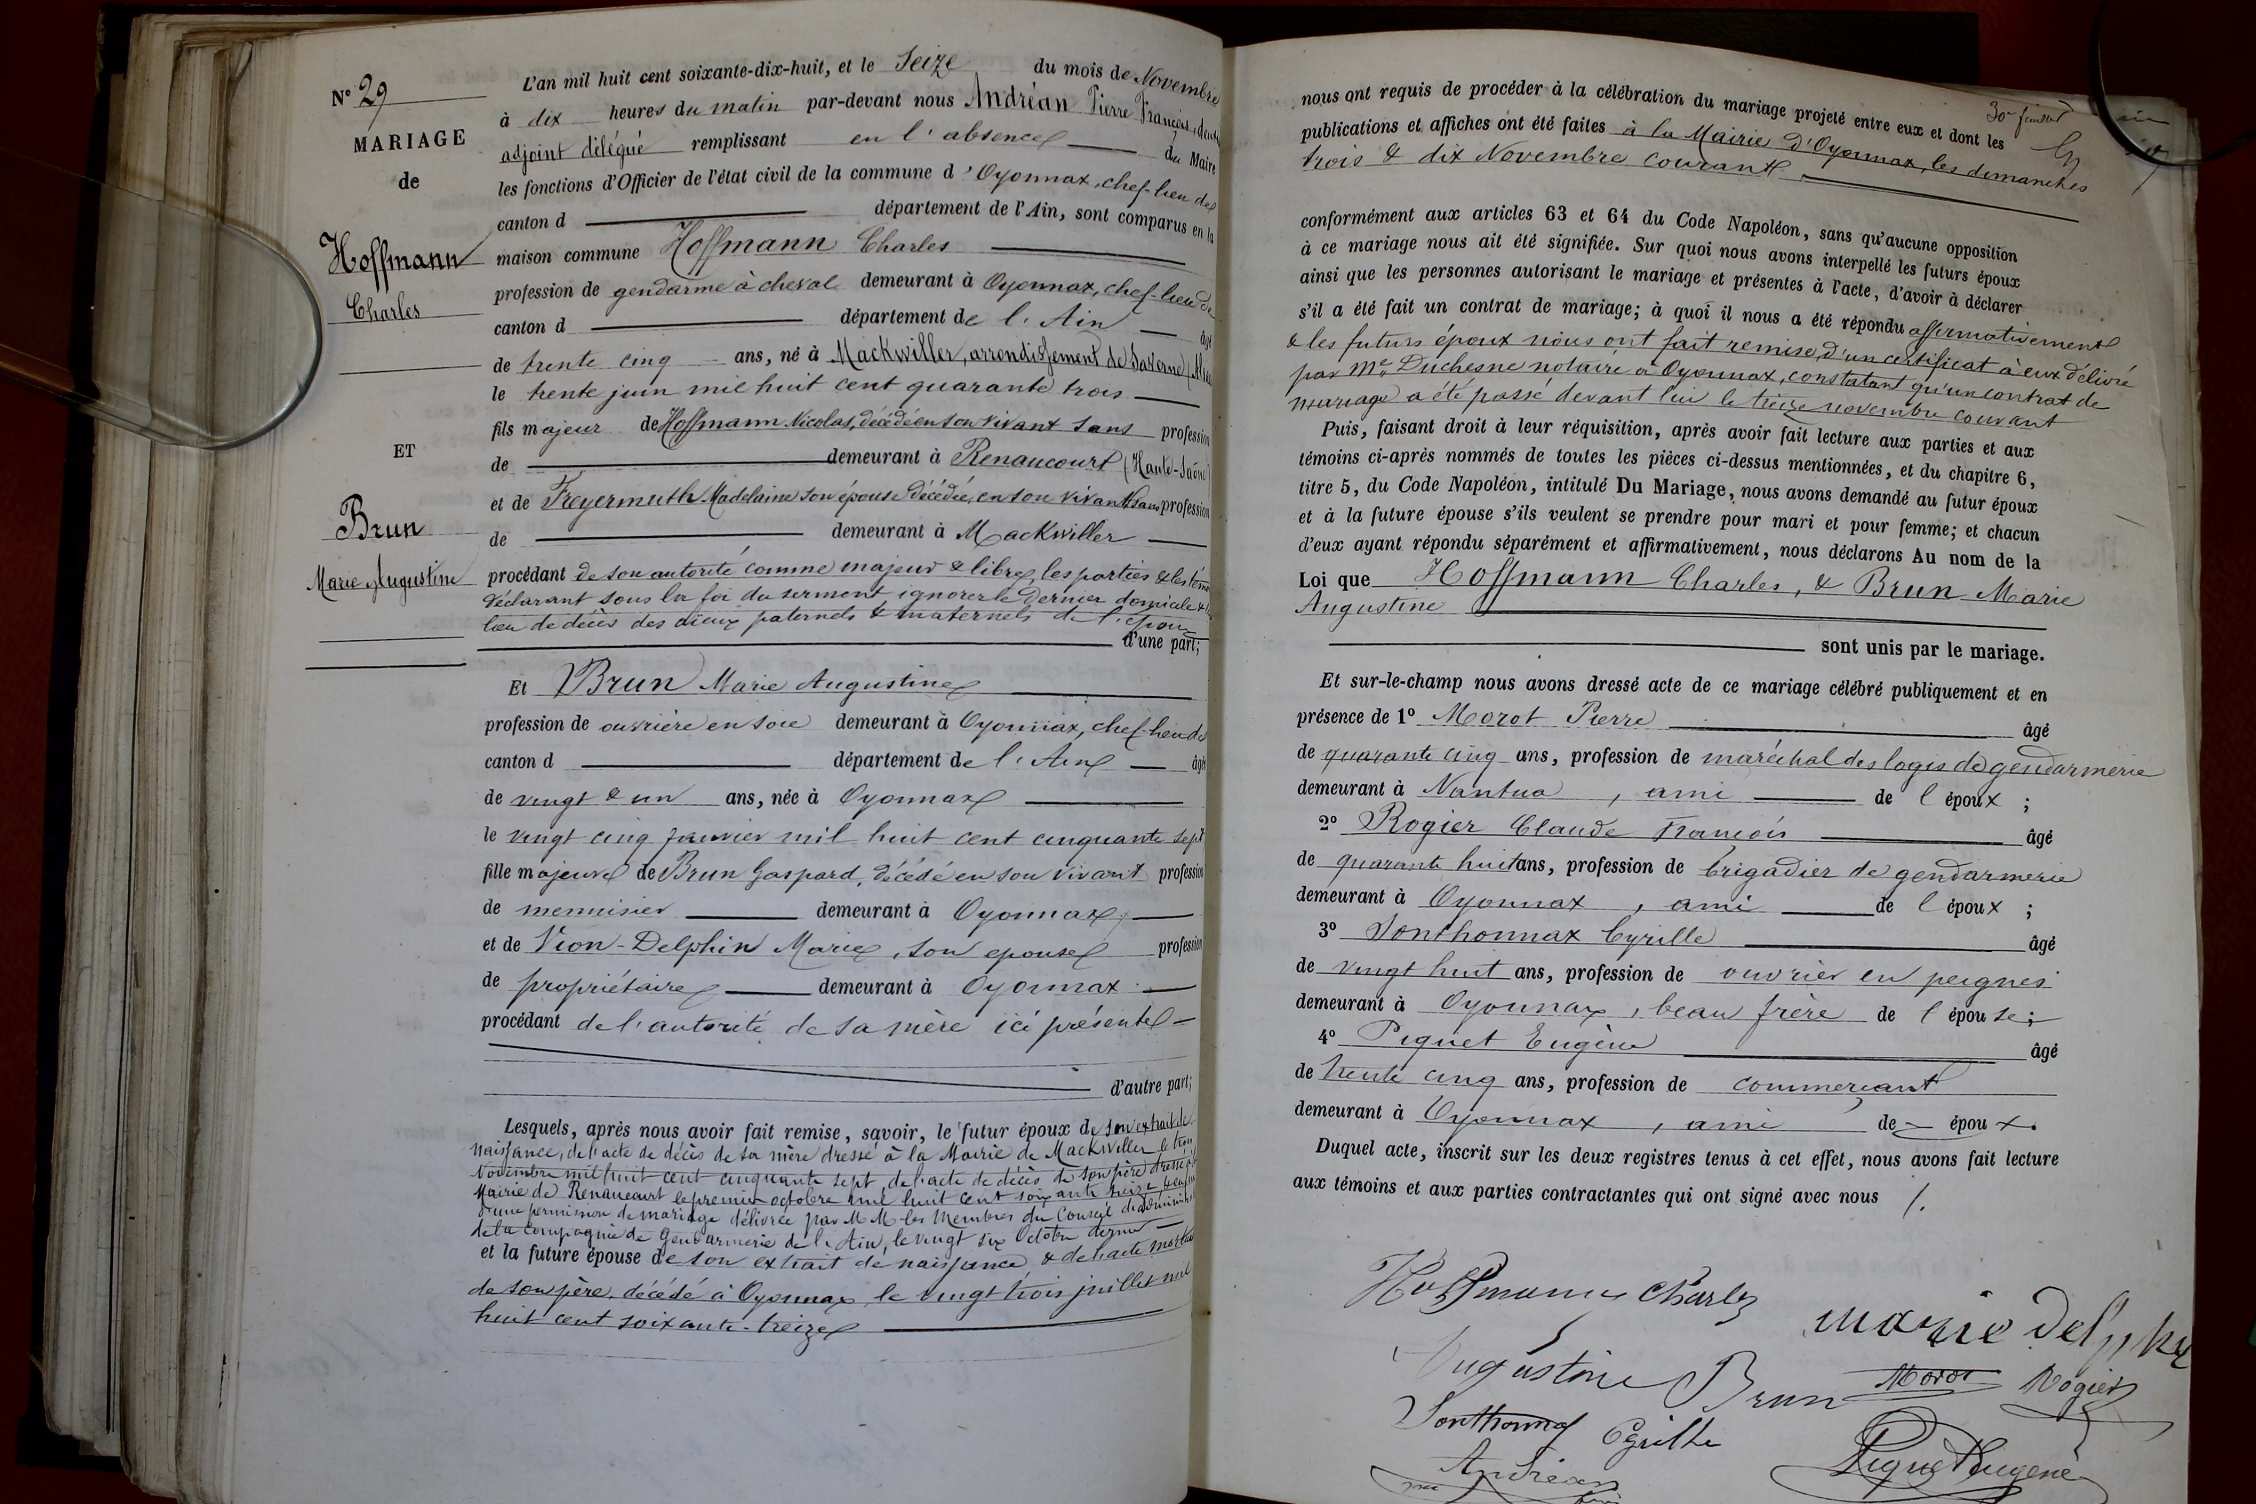 N° 29
MARIAGE
de
Hoffmann
Charles
ET
Brun
Marie Augustine
L'an mil huit cent soixante-dix-huit, et le Seize du mois de Novembre
à dix heures du matin par-devant nous Andréan Pierre François,
adjoint délégué remplissant en l'absence du Maire
les fonctions d'Officier de l'état civil de la commune d'Oyonnax, chef-lieu de
canton d département de l'Ain, sont comparus en la
maison commune Hoffmann Charles
profession de gendarme à cheval demeurant à Oyonnax, chef-lieu de
canton d département de l'Ain âgé
de trente cinq ans, né à Mackwiller, arrondissement de Saverne
le trente juin mil huit cent quarante trois
fils majeur de Hoffmann Nicolas, décédé en son vivant sans profession
de demeurant à Renaucourt (Haute-Saône)
et de Freyermuth Madelaine son épouse décédée, en son vivant sans profession
de demeurant à Mackwiller
procédant de son autorité comme majeur & libre, les parties & les
déclarant sous la foi du serment ignorer le dernier domicile &
lieu de décès des aïeux paternels & maternels de l'époux
d'une part;
Et Brun Marie Augustine
profession de ouvrière en soie demeurant à Oyonnax, chef-lieu de
canton d département de l'Ain âgée
de vingt & un ans, née à Oyonnax
le vingt cinq janvier mil huit cent cinquante sept
fille majeure de Brun Gaspard, décédé en son vivant profession
de menuisier demeurant à Oyonnax,
et de Vion-Delphin Marie, son épouse profession
de propriétaire demeurant à Oyonnax
procédant de l'autorité de sa mère ici présente
d'autre part;
Lesquels, après nous avoir fait remise, savoir, le futur époux de son extrait de
naissance, de l'acte de décès de sa mère dressé à la Mairie de Mackwiller le trois
Novembre mil huit cent cinquante sept, de l'acte de décès de son père dressé
Mairie de Renaucourt le premier octobre mil huit cent soixante
d'une permission de mariage délivrée par MM les Membres du Conseil d'administration
de la Compagnie de Gendarmerie de l'Ain, le vingt six Octobre dernier
et la future épouse de son extrait de naissance & de l'acte mortuaire
de son père, décédé à Oyonnax le vingt trois juillet mil
huit cent soixante-treize
30e feuillet
nous ont requis de procéder à la célébration du mariage projeté entre eux et dont les
publications et affiches ont été faites à la Mairie d'Oyonnax, les dimanches
trois & dix Novembre courant
conformément aux articles 63 et 64 du Code Napoléon, sans qu'aucune opposition
à ce mariage nous ait été signifiée. Sur quoi nous avons interpellé les futurs époux
ainsi que les personnes autorisant le mariage et présentes à l'acte, d'avoir à déclarer
s'il a été fait un contrat de mariage; à quoi il nous a été répondu affirmativement
& les futurs époux nous ont fait remise d'un certificat à eux délivré
par Me Duchesne notaire à Oyonnax, constatant qu'un contrat de
mariage a été passé devant lui le treize novembre courant
Puis, faisant droit à leur réquisition, après avoir fait lecture aux parties et aux
témoins ci-après nommés de toutes les pièces ci-dessus mentionnées, et du chapitre 6,
titre 5, du Code Napoléon, intitulé Du Mariage, nous avons demandé au futur époux
et à la future épouse s'ils veulent se prendre pour mari et pour femme; et chacun
d'eux ayant répondu séparément et affirmativement, nous déclarons Au nom de la
Loi que Hoffmann Charles, & Brun Marie
Augustine
sont unis par le mariage.
Et sur-le-champ nous avons dressé acte de ce mariage célébré publiquement et en
présence de 1° Morot Pierre âgé
de quarante cinq ans, profession de maréchal des logis de gendarmerie
demeurant à Nantua, ami de l époux;
2° Rogier Claude François âgé
de quarante huit ans, profession de brigadier de gendarmerie
demeurant à Oyonnax, ami de l époux;
3° Sonthonnax Cyrille âgé
de vingt huit ans, profession de ouvrier en peignes
demeurant à Oyonnax, beau frère de l épouse;
4° Piquet Eugène âgé
de trente cinq ans, profession de commerçant
demeurant à Oyonnax, ami de époux.
Duquel acte, inscrit sur les deux registres tenus à cet effet, nous avons fait lecture
aux témoins et aux parties contractantes qui ont signé avec nous /.
Hoffmann Charles
marie Delphin
Augustine Brun Morot Rogier
Sonthonnax Cyrille
Piquet Eugene
Andréan